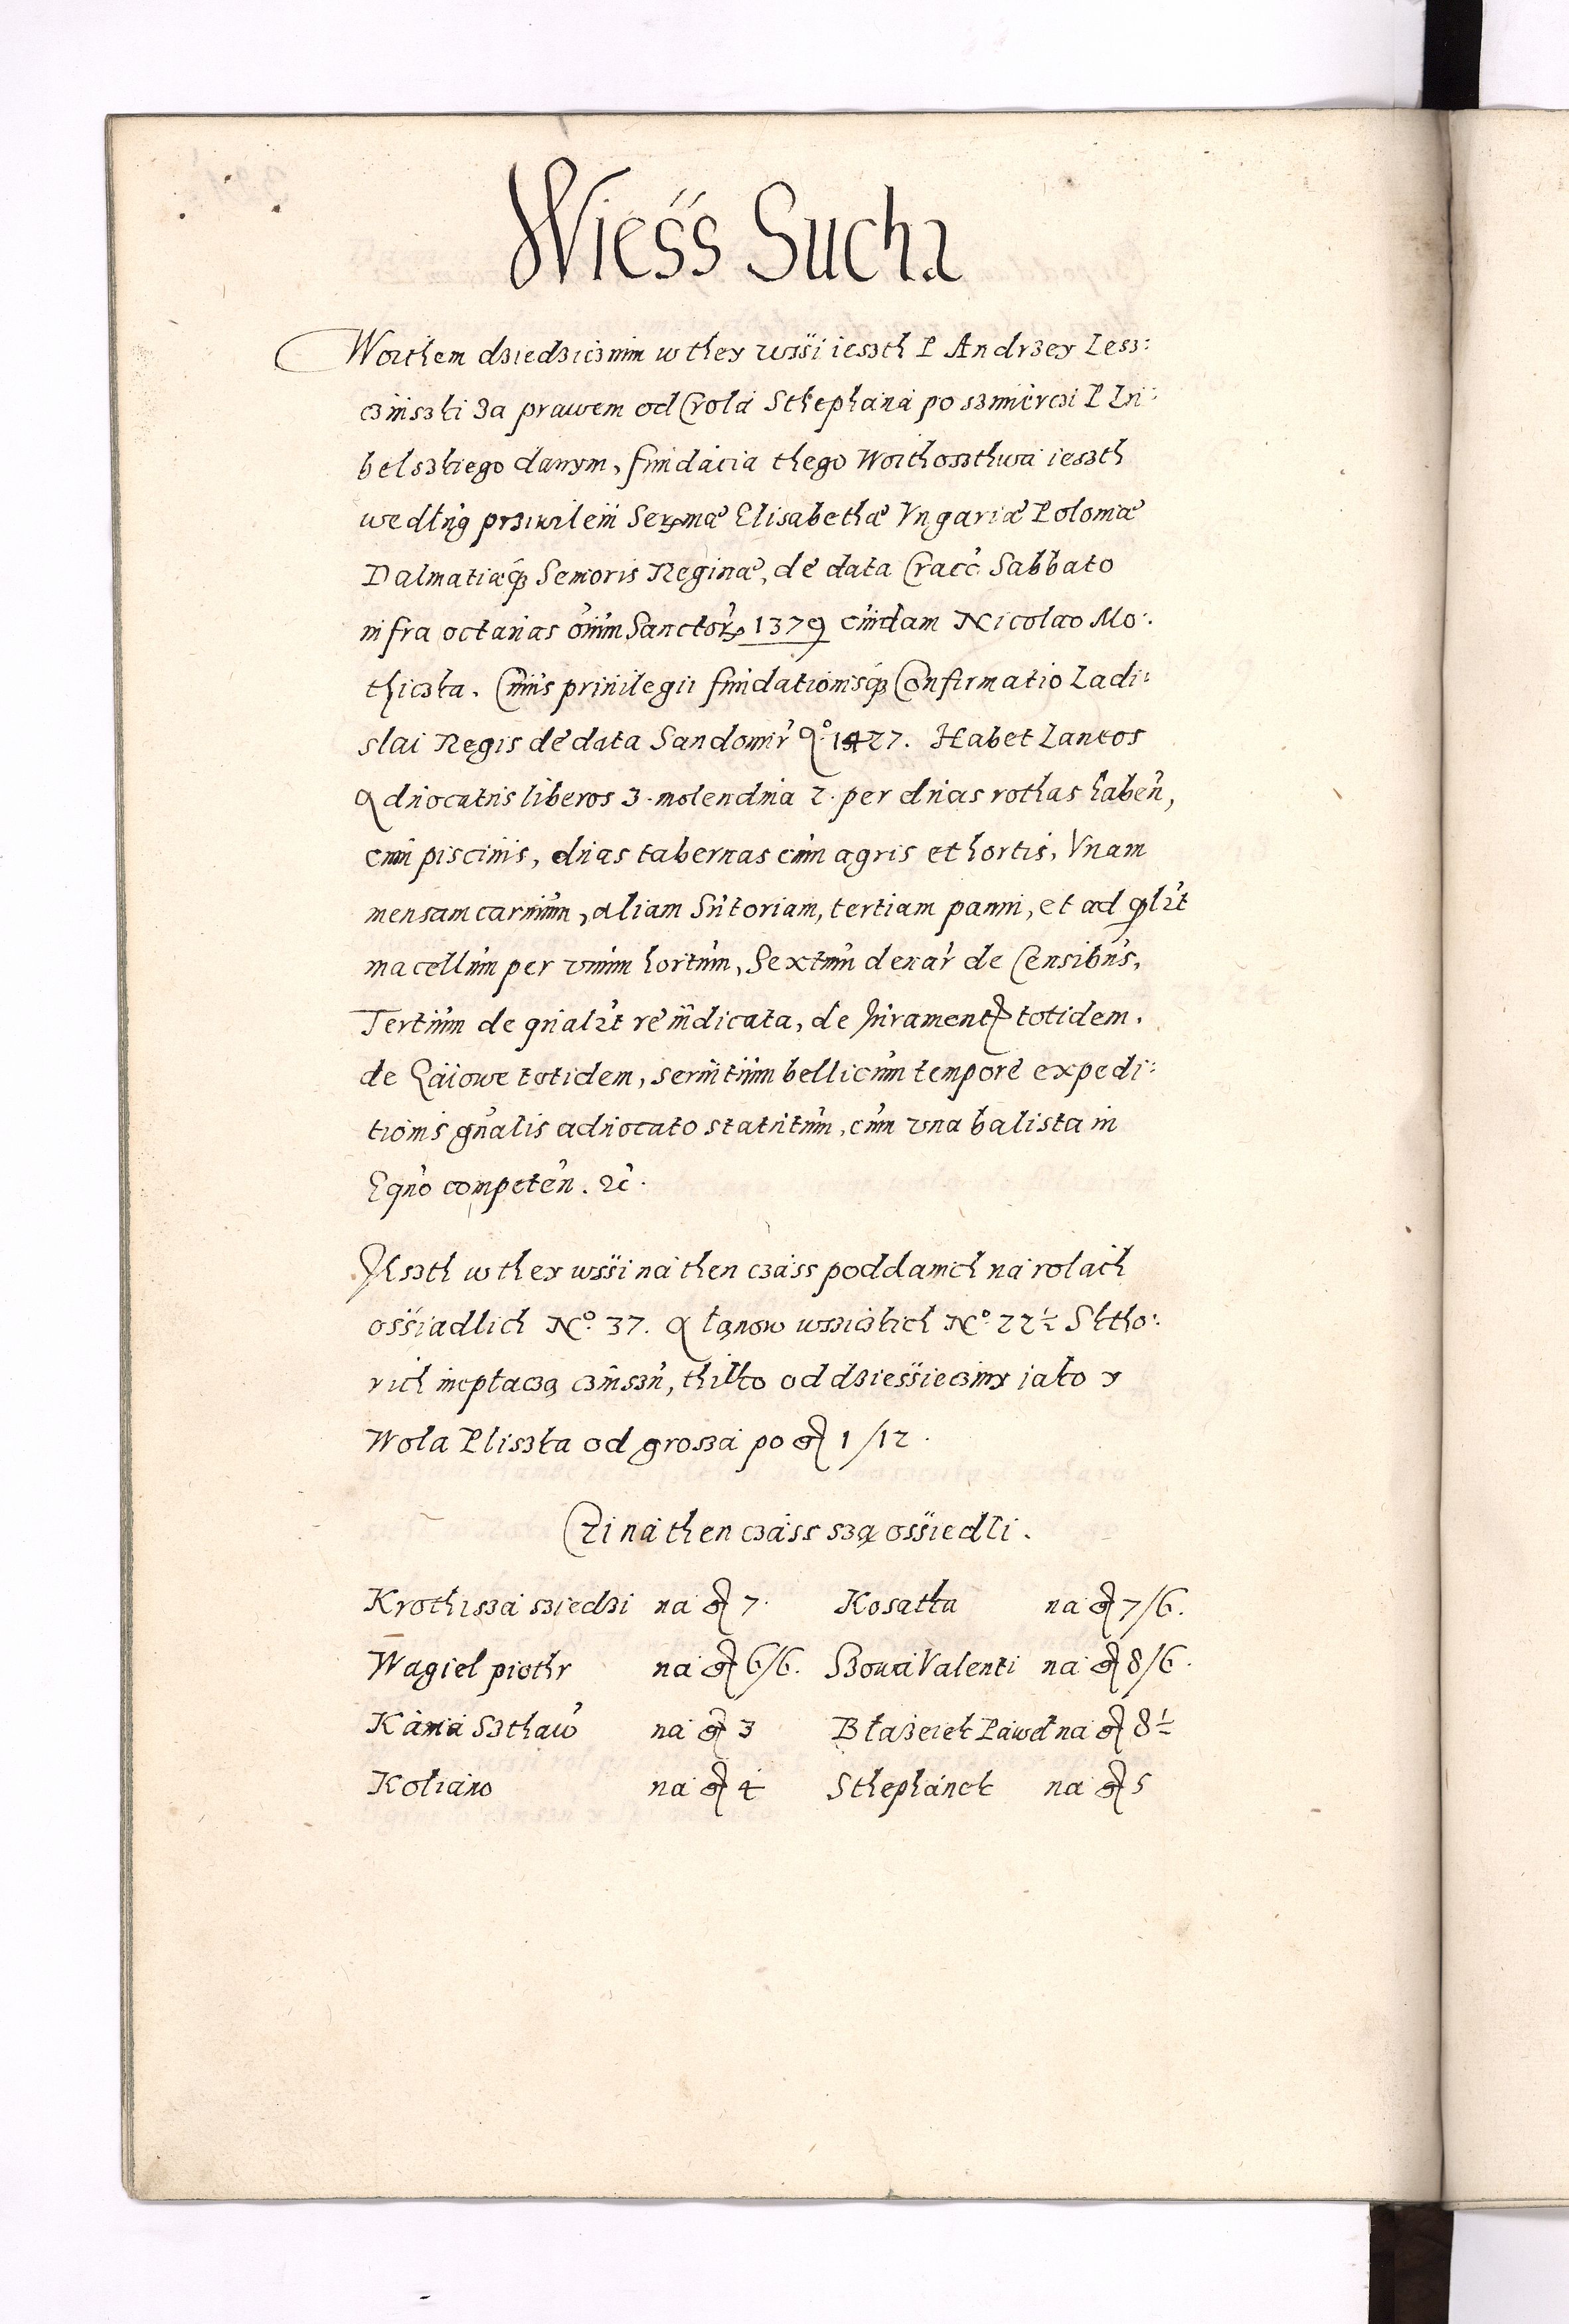 Wiess Sucha
Woithem dziedzicznim w they wssi ieszth P Andrzey Lesz:
czinszki za prawem od Crola Sthephana po szmierczi P Lu:
belszkiego danym, fundacia thego Woithoszthwa ieszth
wedlug przivileiu Serenissimæ Elisabethæ Vngariæ Poloniæ
Dalmatiæq3 Senioris Reginæ, de data Crac: Sabbato
infra octauas omium Sanctor 1379 cuidam Nicolao Mo:
thiczka. Cuius priuilegii fundationisq3 Confirmatio Ladi:
slai Regis de data Sandomir Ao. 1427. Habet Laneos
Aduocatus liberos 3. molendina 2. per duas rothas haben,
cum piscinis, duas tabernas cum agris et hortis, Vnam
mensam carnium, aliam Sutoriam, tertiam panni, et ad qlzt
macellum per vnum hortum, Sextum denar de Censibus,
Tertium de qualzt re iudicata, de Iurament totidem,
de totidem, seruitium bellicum tempore expedi:
tionis gnalis aduocato statutum, cum vna balista in
Equo competen. zc.
Jeszth w they wssi na then czass poddanich na rolach
ossiadlich No. 37. A łanow wszitkich No. 22½ Sktho:
rich nieplaczą czinszu, thilko od dziessieciny iako y
Wola Pliszka od grosza po gr 1/12.
Czi na then czass szą ossiedli.
Krothisza sziedzi na gr 7. Kosatka na gr 7/6.
Wagiel piothr na gr 6/6. Szowa Valenti na gr 8/6.
Kania Szthaw na gr 3 Błażeiek Paweł na gr 8½
Koliano na gr 4 Sthephanek na gr 5